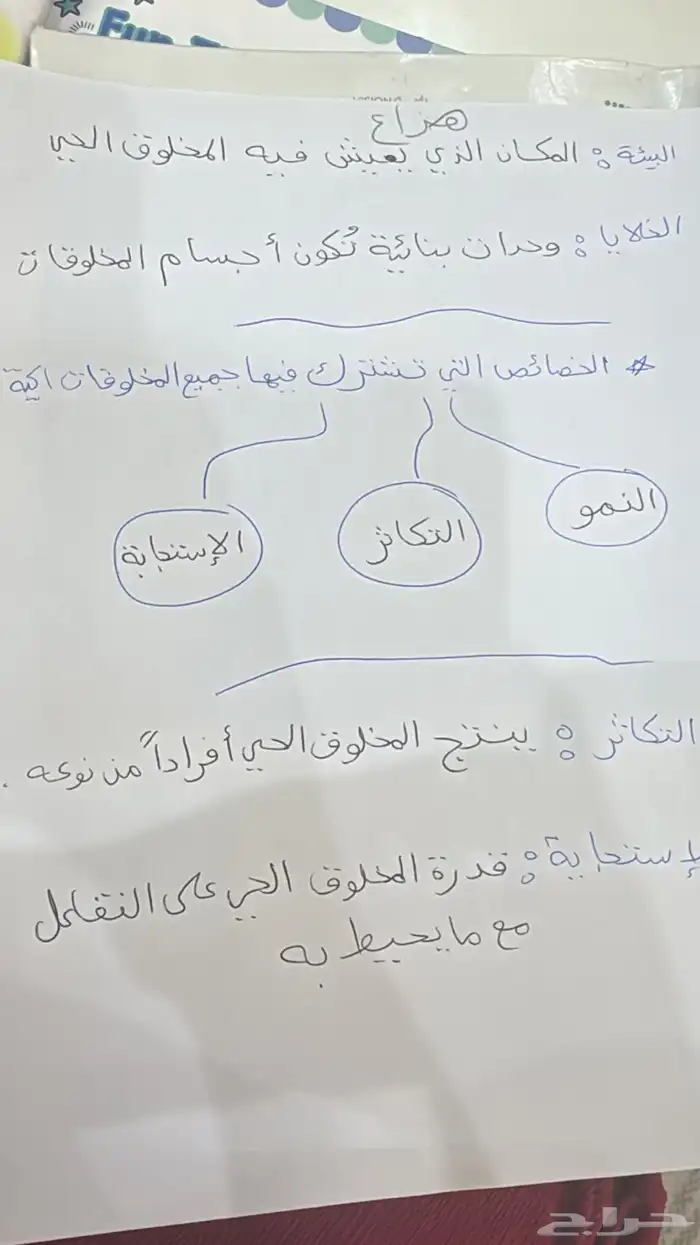 Fun
هزاع
البيئة : المكان الذي يعيش فيه المخلوق الحي
الخلايا : وحدات بنائية تُكون أجسام المخلوقات
* الخصائص التي تشترك فيها جميع المخلوقات
النمو
التكاثر
الإستجابة
التكاثر : ينتج المخلوق الحي أفراداً من نوعه .
لإستجابة : قدرة المخلوق الحي على التفاعل
مع ما يحيط به
حراج